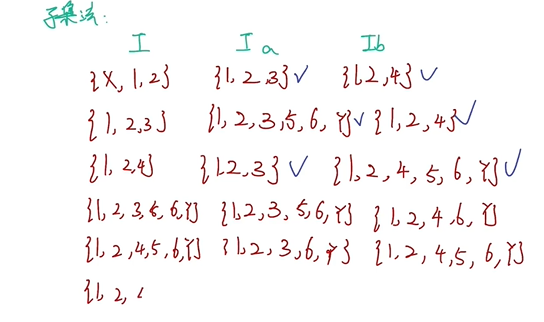 子集法:
I Ia Ib
{X, 1, 2} {1, 2, 3} ✓ {1, 2, 4} ✓
{1, 2, 3} {1, 2, 3, 5, 6, Y} ✓ {1, 2, 4} ✓
{1, 2, 4} {1, 2, 3} ✓ {1, 2, 4, 5, 6, Y} ✓
{1, 2, 3, 5, 6, Y} {1, 2, 3, 5, 6, Y} {1, 2, 4, 6, Y}
{1, 2, 4, 5, 6, Y} {1, 2, 3, 6, Y} {1, 2, 4, 5, 6, Y}
{1, 2,